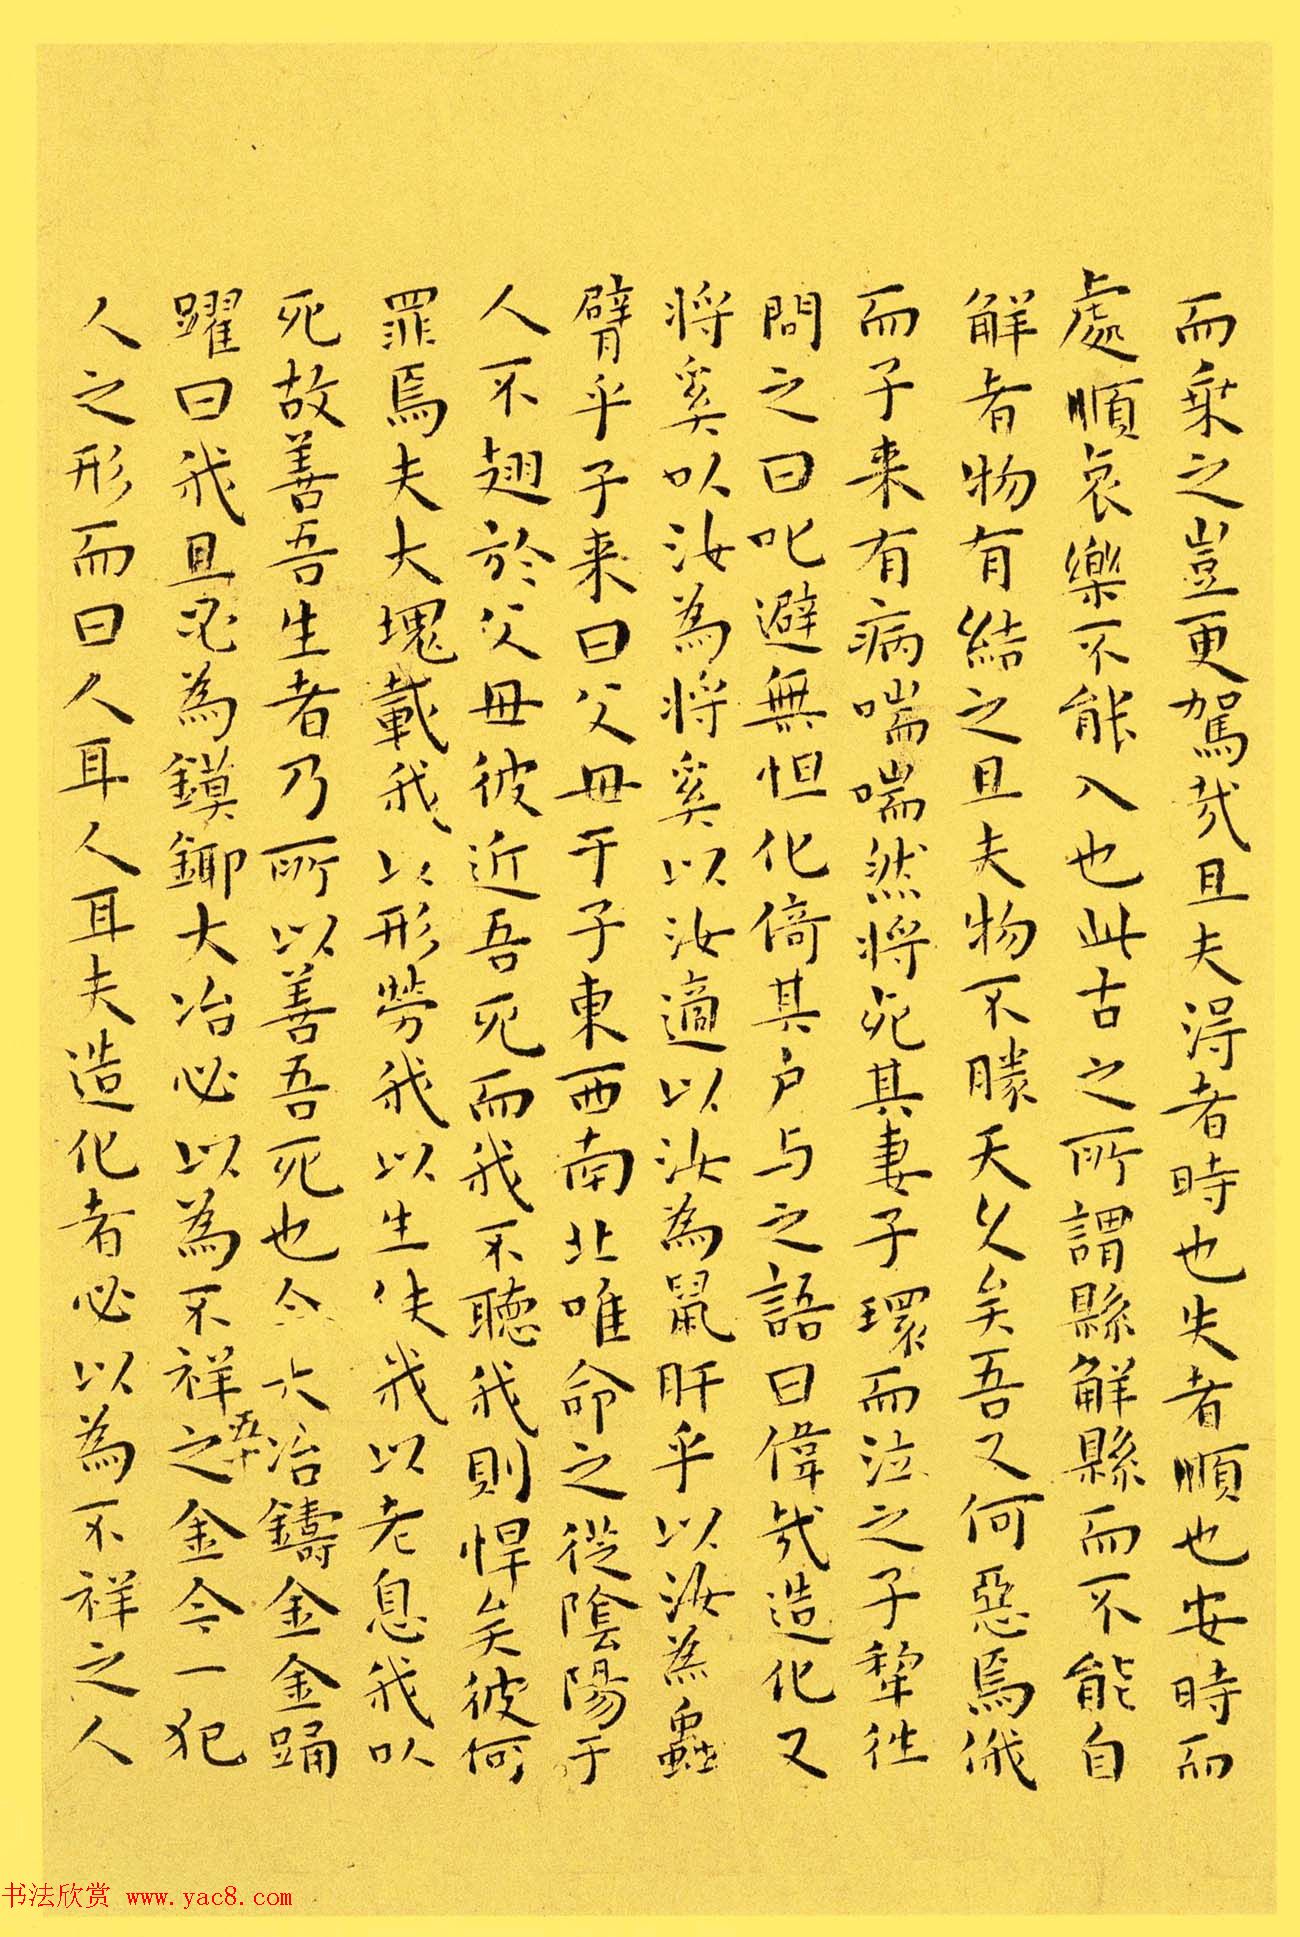 而乘之豈更駕哉且夫得者時也失者順也安時而
處順哀樂不能入也此古之所謂縣解縣而不能自
解者物有結之且夫物不勝天久矣吾又何惡焉俄
而子来有病喘喘然将死其妻子環而泣之子犂往
問之曰叱避無怛化倚其户与之語曰偉哉造化又
将奚以汝為将奚以汝適以汝為鼠肝乎以汝為蟲
臂乎子来曰父母于子東西南北唯命之從陰陽于
人不翅於父母彼近吾死而我不聽我則悍矣彼何
罪焉夫大塊載我以形勞我以生佚我以老息我以
死故善吾生者乃所以善吾死也今大冶鑄金金踊
五十
躍曰我且必為鏌鋣大冶必以為不祥之金今一犯
人之形而曰人耳人耳夫造化者必以為不祥之人
书法欣赏 www.yac8.com